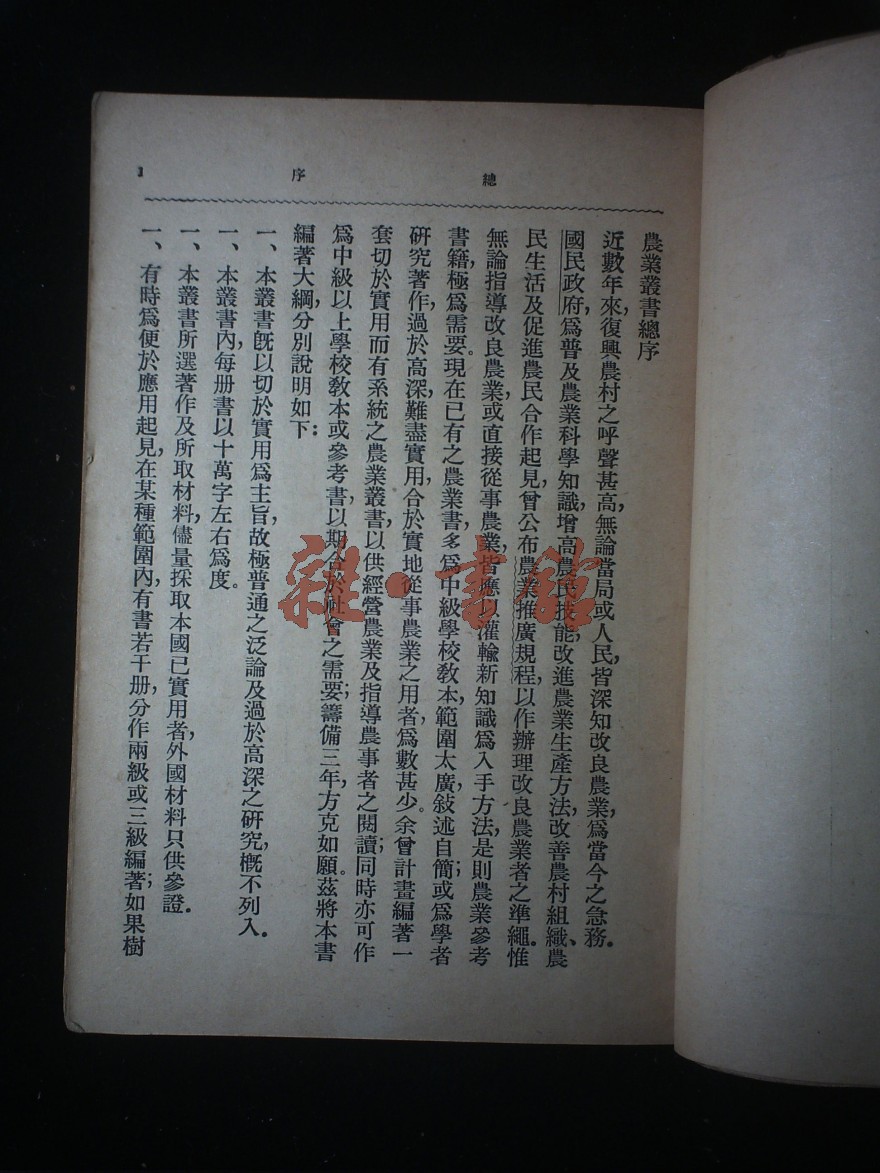 總序
1
農業叢書總序
近數年來，復興農村之呼聲甚高，無論當局或人民，皆深知改良農業，爲當今之急務。
國民政府，爲普及農業科學知識，增高農民技能，改進農業生產方法，改善農村組織、農
民生活及促進農民合作起見，曾公布農業推廣規程，以作辦理改良農業者之準繩。惟
無論指導改良農業，或直接從事農業，皆應以灌輸新知識爲入手方法，是則農業參考
書籍，極爲需要。現在已有之農業書，多爲中級學校敎本，範圍太廣，敍述自簡；或爲學者
研究著作，過於高深，難盡實用，合於實地從事農業之用者，爲數甚少。余曾計畫編著一
套切於實用而有系統之農業叢書，以供經營農業及指導農事者之閱讀；同時亦可作
爲中級以上學校敎本或參考書，以期合於社會之需要；籌備三年，方克如願。茲將本書
編著大綱，分別說明如下：
一、本叢書旣以切於實用爲主旨，故極普通之泛論及過於高深之研究，概不列入。
一、本叢書內，每册書以十萬字左右爲度。
一、本叢書所選著作及所取材料，儘量採取本國已實用者，外國材料只供參證。
一、有時爲便於應用起見，在某種範圍內，有書若干册，分作兩級或三級編著；如果樹
雜·書館